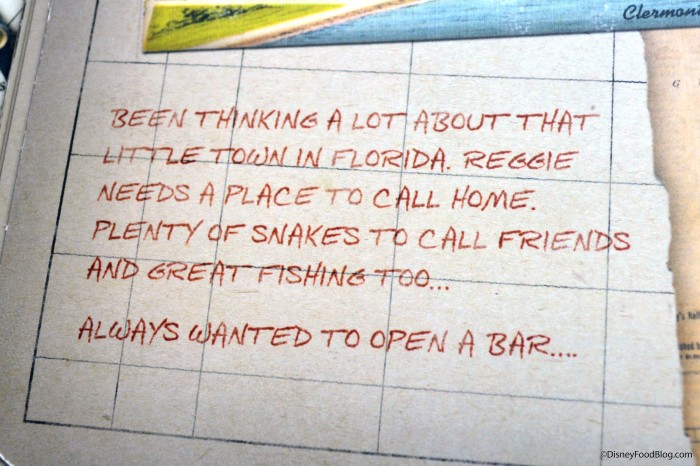 Clermont
BEEN THINKING A LOT ABOUT THAT
LITTLE TOWN IN FLORIDA. REGGIE
NEEDS A PLACE TO CALL HOME.
PLENTY OF SNAKES TO CALL FRIENDS
AND GREAT FISHING TOO...
ALWAYS WANTED TO OPEN A BAR....
G
©DisneyFoodBlog.com